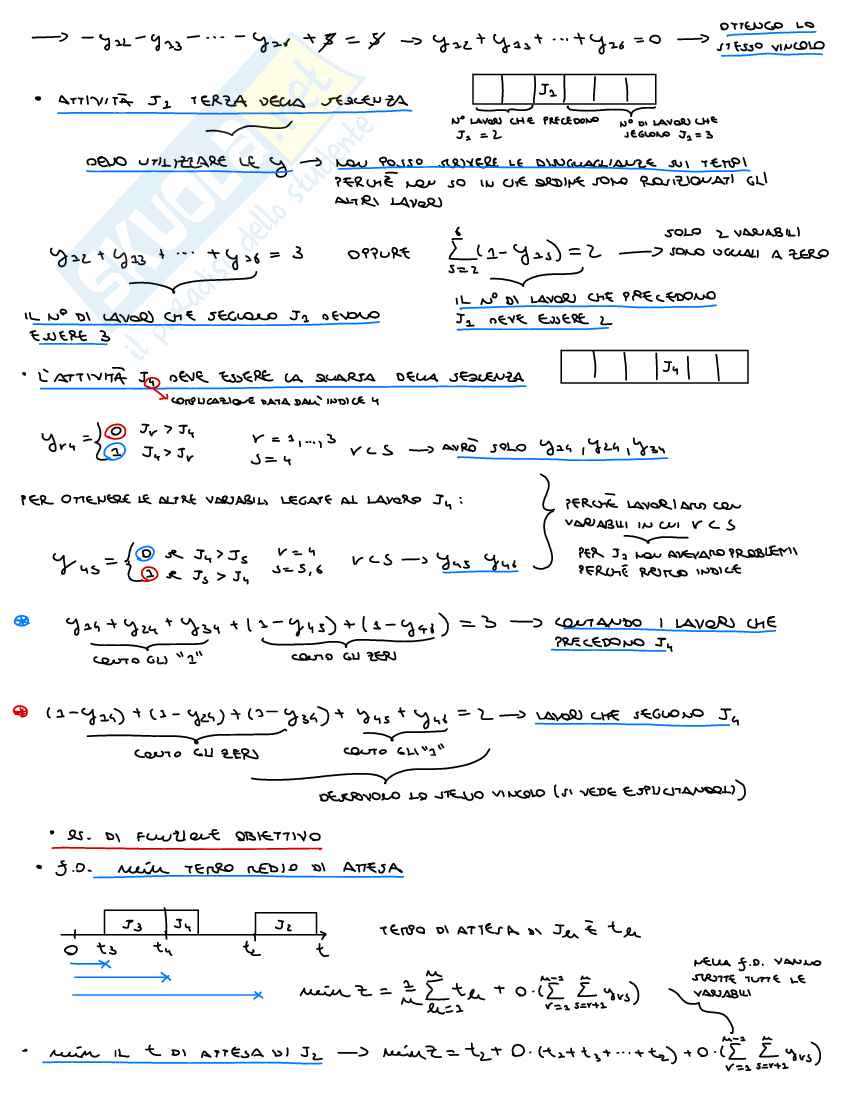 → -y12 - y13 - ... - y16 + 5 = 5 → y12 + y13 + ... + y16 = 0 → OTTENGO LO STESSO VINCOLO
• ATTIVITÀ J1 TERZA DELLA SEQUENZA
J1
N° LAVORI CHE PRECEDONO J1 = 2
N° DI LAVORI CHE SEGUONO J1 = 3
DEVO UTILIZZARE LE y → NON POSSO SCRIVERE LE DISUGUAGLIANZE SUI TEMPI
PERCHÈ NON SO IN CHE ORDINE SONO POSIZIONATI GLI
ALTRI LAVORI
y12 + y13 + ... + y16 = 3 OPPURE ∑_{s=2}^{6} (1 - y1s) = 2 → SOLO 2 VARIABILI SONO UGUALI A ZERO
IL N° DI LAVORI CHE SEGUONO J1 DEVONO
ESSERE 3
IL N° DI LAVORI CHE PRECEDONO
J1 DEVE ESSERE 2
• L'ATTIVITÀ J4 DEVE ESSERE LA QUARTA DELLA SEQUENZA
J4
COMPLICAZIONE DATA DALL'INDICE 4
yr4 = { 0 Jr > J4
1 J4 > Jr
r = 1,...,3
s = 4
r < s → AVRÒ SOLO y14, y24, y34
PER OTTENERE LE ALTRE VARIABILI LEGATE AL LAVORO J4:
y4s = { 0 se J4 > Js
1 se Js > J4
r = 4
s = 5,6
r < s → y45 y46
PERCHÈ LAVORIAMO CON
VARIABILI IN CUI r < s
PER J1 NON AVEVAMO PROBLEMI
PERCHÈ PRIMO INDICE
y14 + y24 + y34 + (1 - y45) + (1 - y46) = 3 → CONTANDO I LAVORI CHE
PRECEDONO J4
CONTO GLI "1" CONTO GLI ZERI
(1 - y14) + (1 - y24) + (1 - y34) + y45 + y46 = 2 → LAVORI CHE SEGUONO J4
CONTO GLI ZERI CONTO GLI "1"
DESCRIVONO LO STESSO VINCOLO (SI VEDE ESPLICITANDOLI)
• es. DI FUNZIONE OBIETTIVO
• f.O. min TEMPO MEDIO DI ATTESA
J3 J4 J2
0 t3 t4 t2 t
TEMPO DI ATTESA DI Jh È th
min z = 1/n ∑_{h=1}^{n} th + 0·(∑_{r=1}^{n-1} ∑_{s=r+1}^{n} yrs)
NELLA f.O. VANNO
SCRITTE TUTTE LE
VARIABILI
• min IL t DI ATTESA DI J2 → min z = t2 + 0·(t1 + t3 + ... + t2) + 0·(∑_{r=1}^{n-1} ∑_{s=r+1}^{n} yrs)
SKUOLA.net
il paradiso dello studente